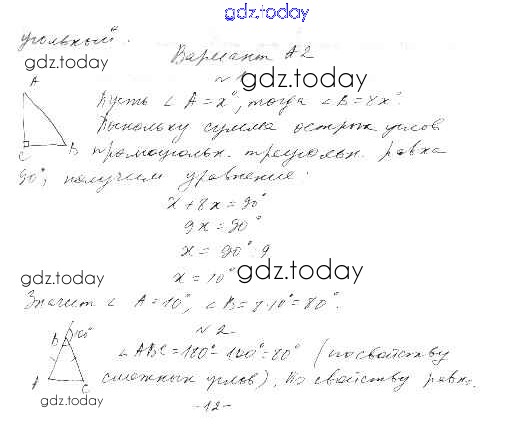 gdz.today
угольный.
gdz.today
Вариант А2
№1
gdz.today
A
Пусть ∠A = x°, тогда ∠B = 8x°.
Поскольку сумма острых углов
C B прямоугольн. треугольн. равна
90°, получим уравнение:
x + 8x = 90°
9x = 90°
x = 90° : 9
x = 10°
gdz.today
gdz.today
Значит ∠A = 10°, ∠B = 8·10° = 80°.
№2
B 100°
∠ABC = 180° - 100° = 80° (по свойству
A C смежных углов). По свойству равн.
gdz.today
-12-